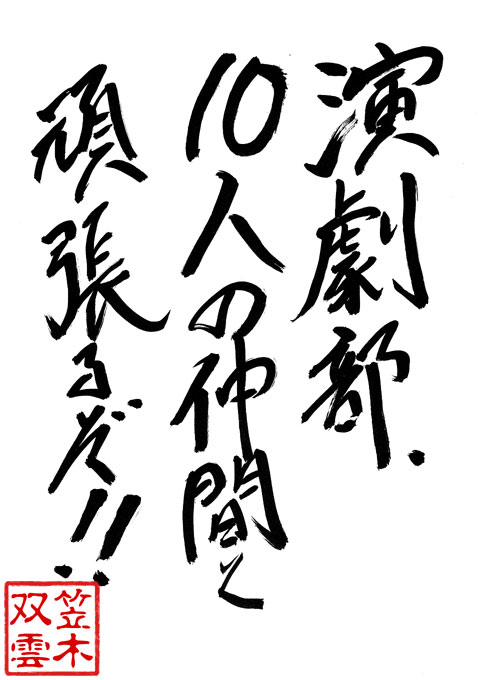 演劇部.
10人の仲間と
頑張るぞ!!
笠木
双雲